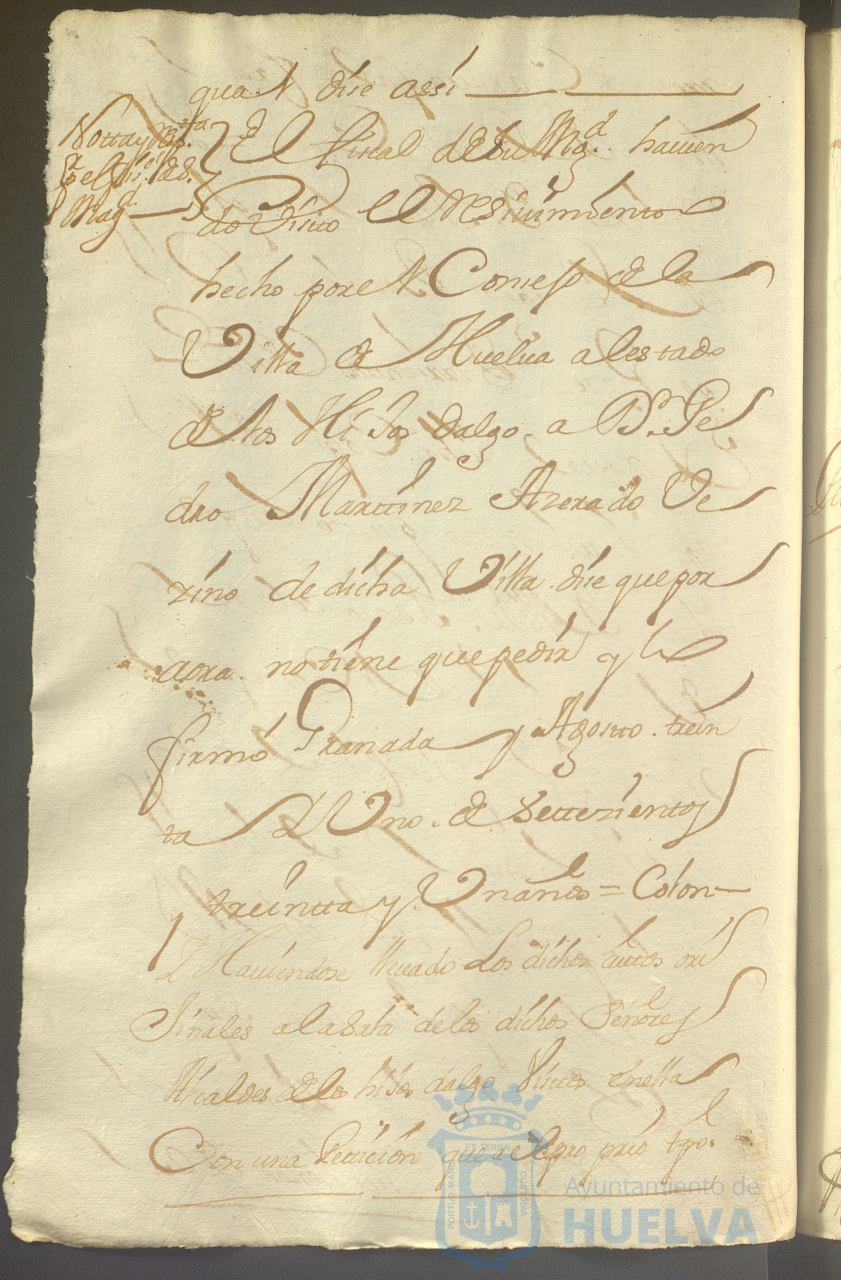 qual dize assi
Notta y Rpta
del fis.l de S.
Mag.d
El fiscal de Su Mag.d havien
do Visto el reSiuimiento
hecho por el Consejo de la
Villa de Huelua al estado
de los HiJos dalgo a D.n Pe
dro Marttinez Azerado Ve
zino de dicha Villa dize que por
aora no tiene que pedir y lo
firmó Granada y Agosto trein
ta y Uno de Settezientos
y treintta y Un años = Colon
Y Hauiendose lleuado Los dichos auttos ori
Jinales a la Sala de los dichos Señores
Alcaldes de los hiJos dalgo Vistos en ella
Con una Petticion que
Ayuntamiento de
HUELVA